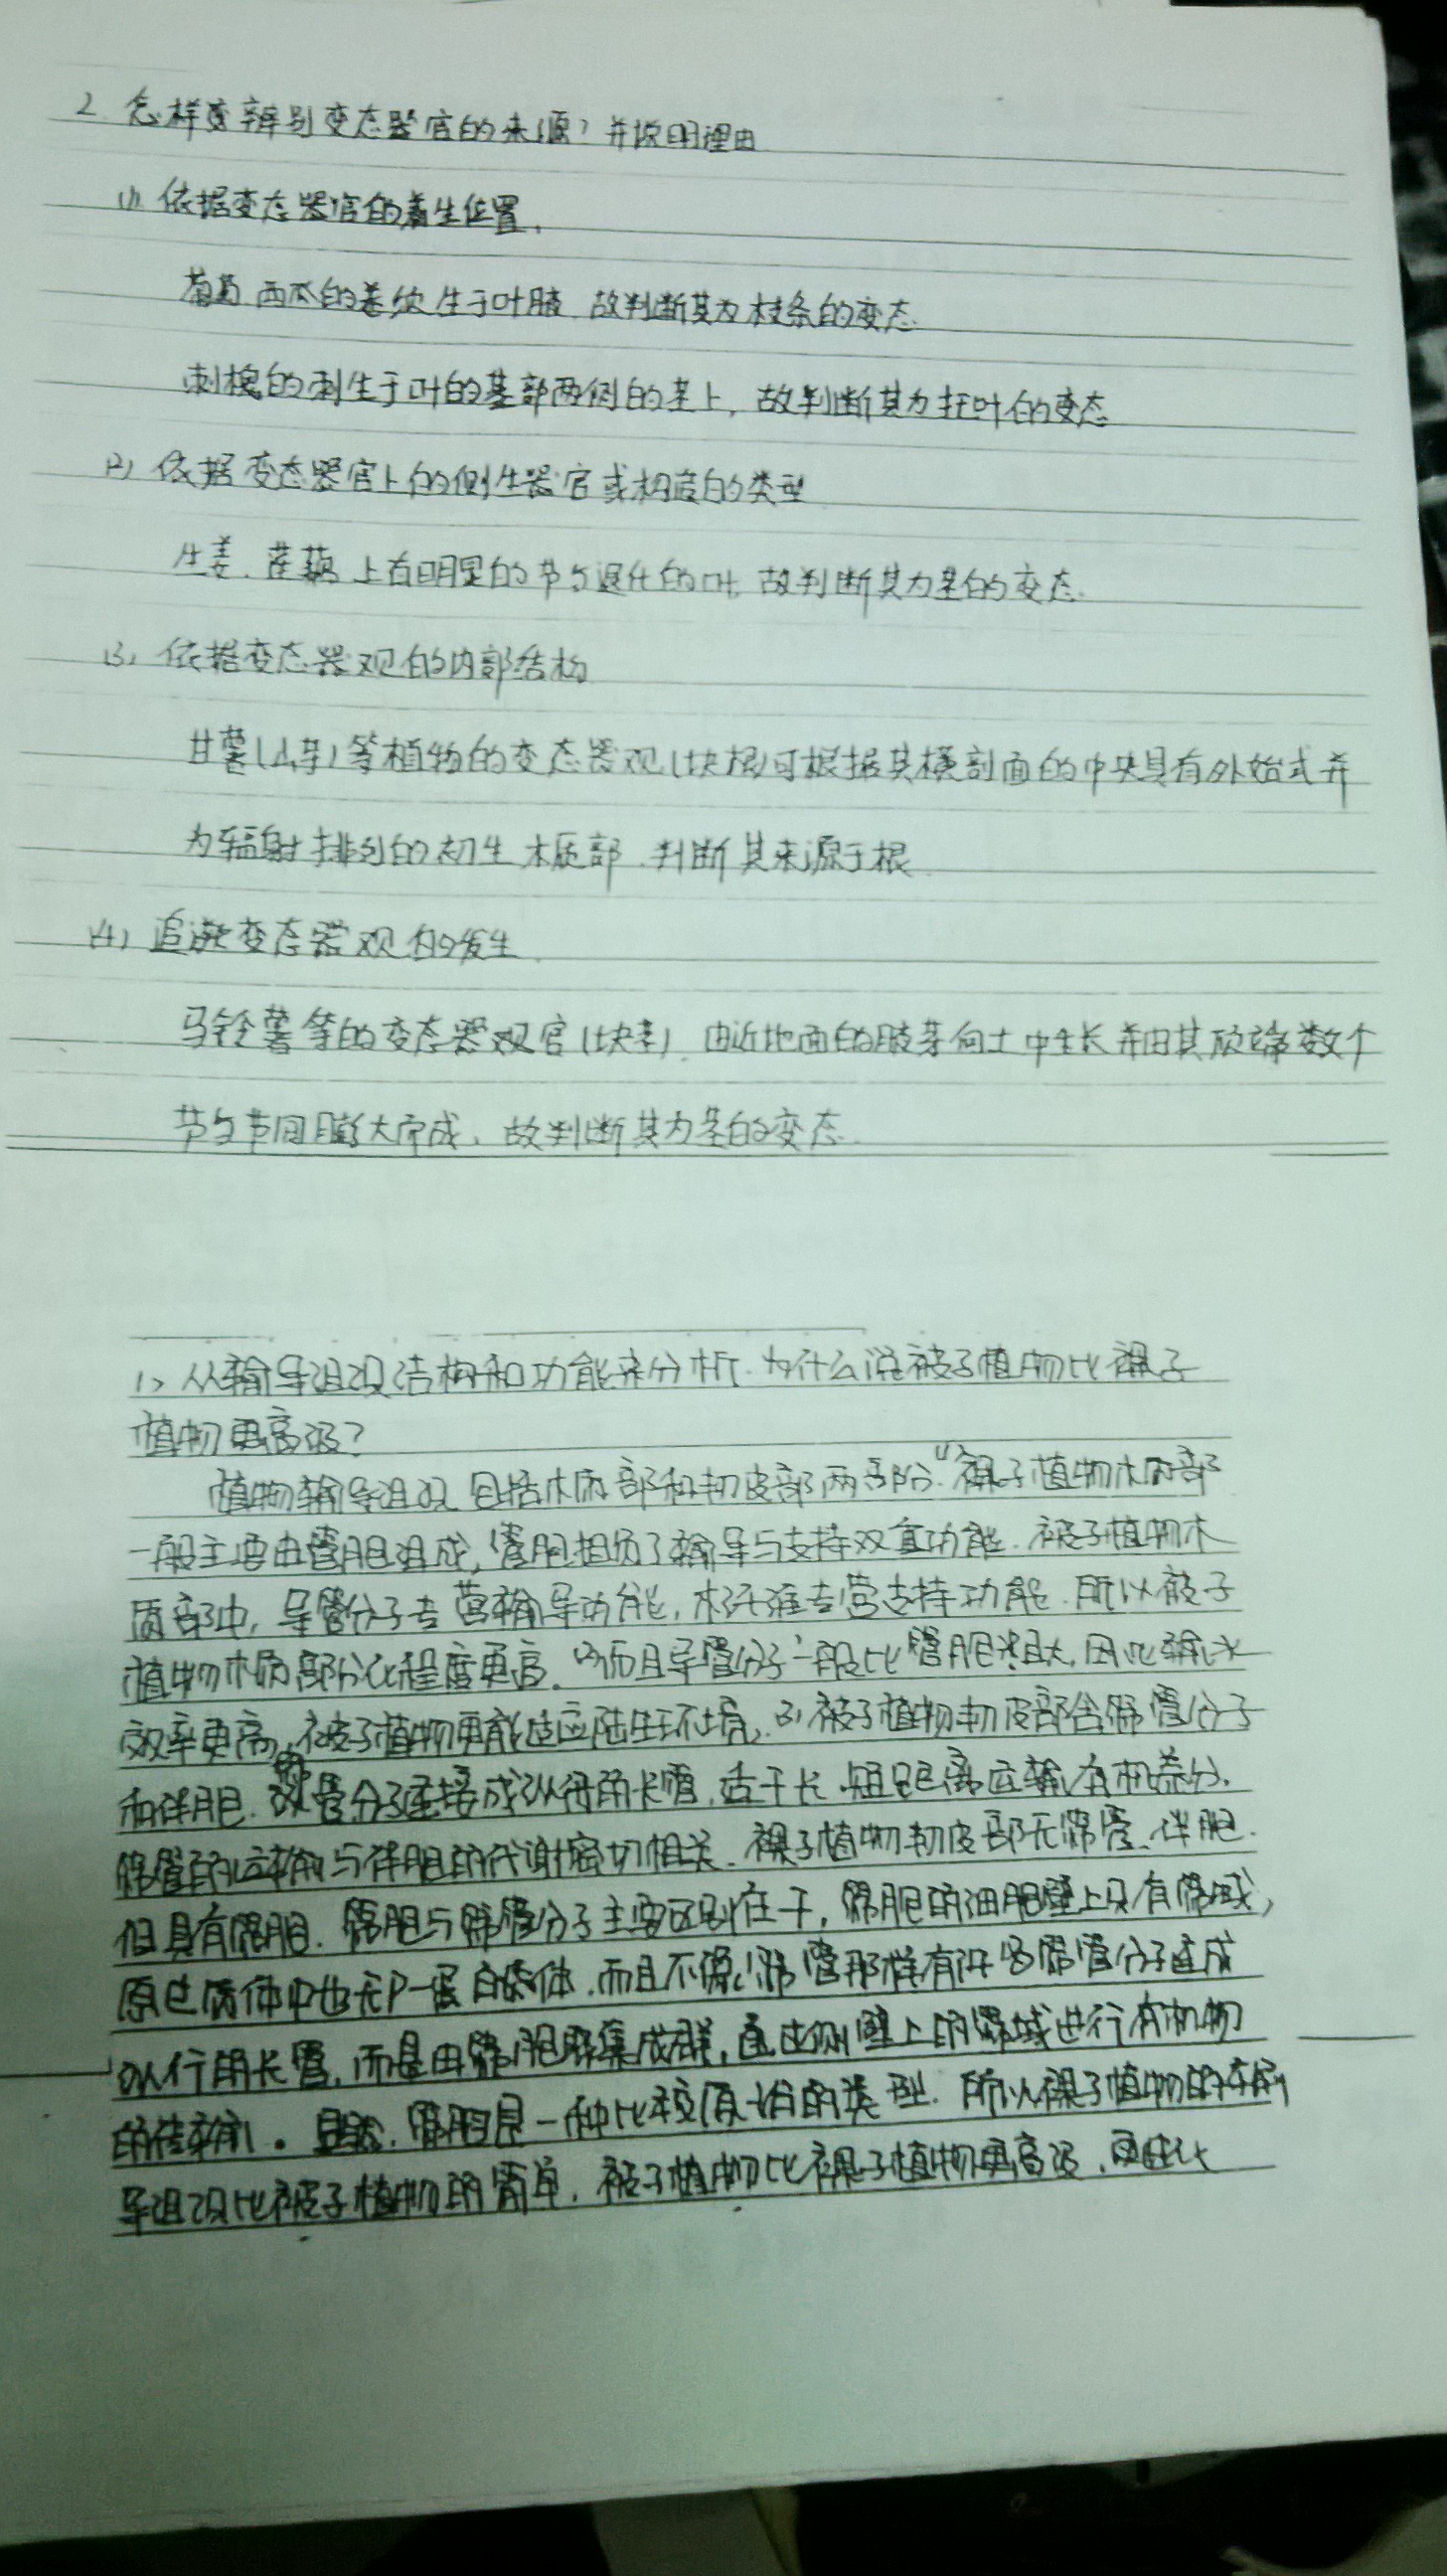 2. 怎样辨别变态器官的来源？并说明理由
(1) 依据变态器官的着生位置.
葡萄 西瓜的卷须生于叶腋 故判断其为枝条的变态
刺槐的刺生于叶的基部两侧的茎上, 故判断其为托叶的变态
(2) 依据变态器官上的侧生器官或构造的类型
生姜. 莲藕 上有明显的节与退化的叶, 故判断其为茎的变态.
(3) 依据变态器观的内部结构
甘薯(山芋)等植物的变态器观(块根)可根据其横剖面的中央具有外始式并
为辐射排列的初生木质部 判断其来源于根
(4) 追溯变态器观的发生
马铃薯等的变态器观官(块茎) 由近地面的腋芽向土中生长并由其顶端数个
节与节间膨大而成, 故判断其为茎的变态.
1> 从输导组织结构和功能来分析. 为什么说被子植物比裸子
植物更高级?
植物输导组织包括木质部和韧皮部两部分. (1)裸子植物木质部
一般主要由管胞组成, 管胞担负了输导与支持双重功能. 被子植物木
质部中, 导管分子专营输导功能, 木纤维专营支持功能. 所以被子
植物木质部分化程度更高. (2)而且导管分子一般比管胞粗大, 因此输水
效率更高, 被子植物更能适应陆生环境. (3)被子植物韧皮部含筛管分子
和伴胞. 筛管分子连接成纵行的长管, 适于长、短距离运输有机养分.
筛管的运输与伴胞的代谢密切相关. 裸子植物韧皮部无筛管、伴胞.
但具有筛胞. 筛胞与筛管分子主要区别在于, 筛胞的细胞壁上只有筛域,
原生质体中也无P-蛋白质体. 而且不像筛管那样有许多筛管分子连成
纵行的长管, 而是由筛胞聚集成群, 通过侧壁上的筛域进行有机物
的传输. 显然, 筛胞是一种比较原始的类型. 所以裸子植物的输
导组织比被子植物的简单, 被子植物比裸子植物更高级.